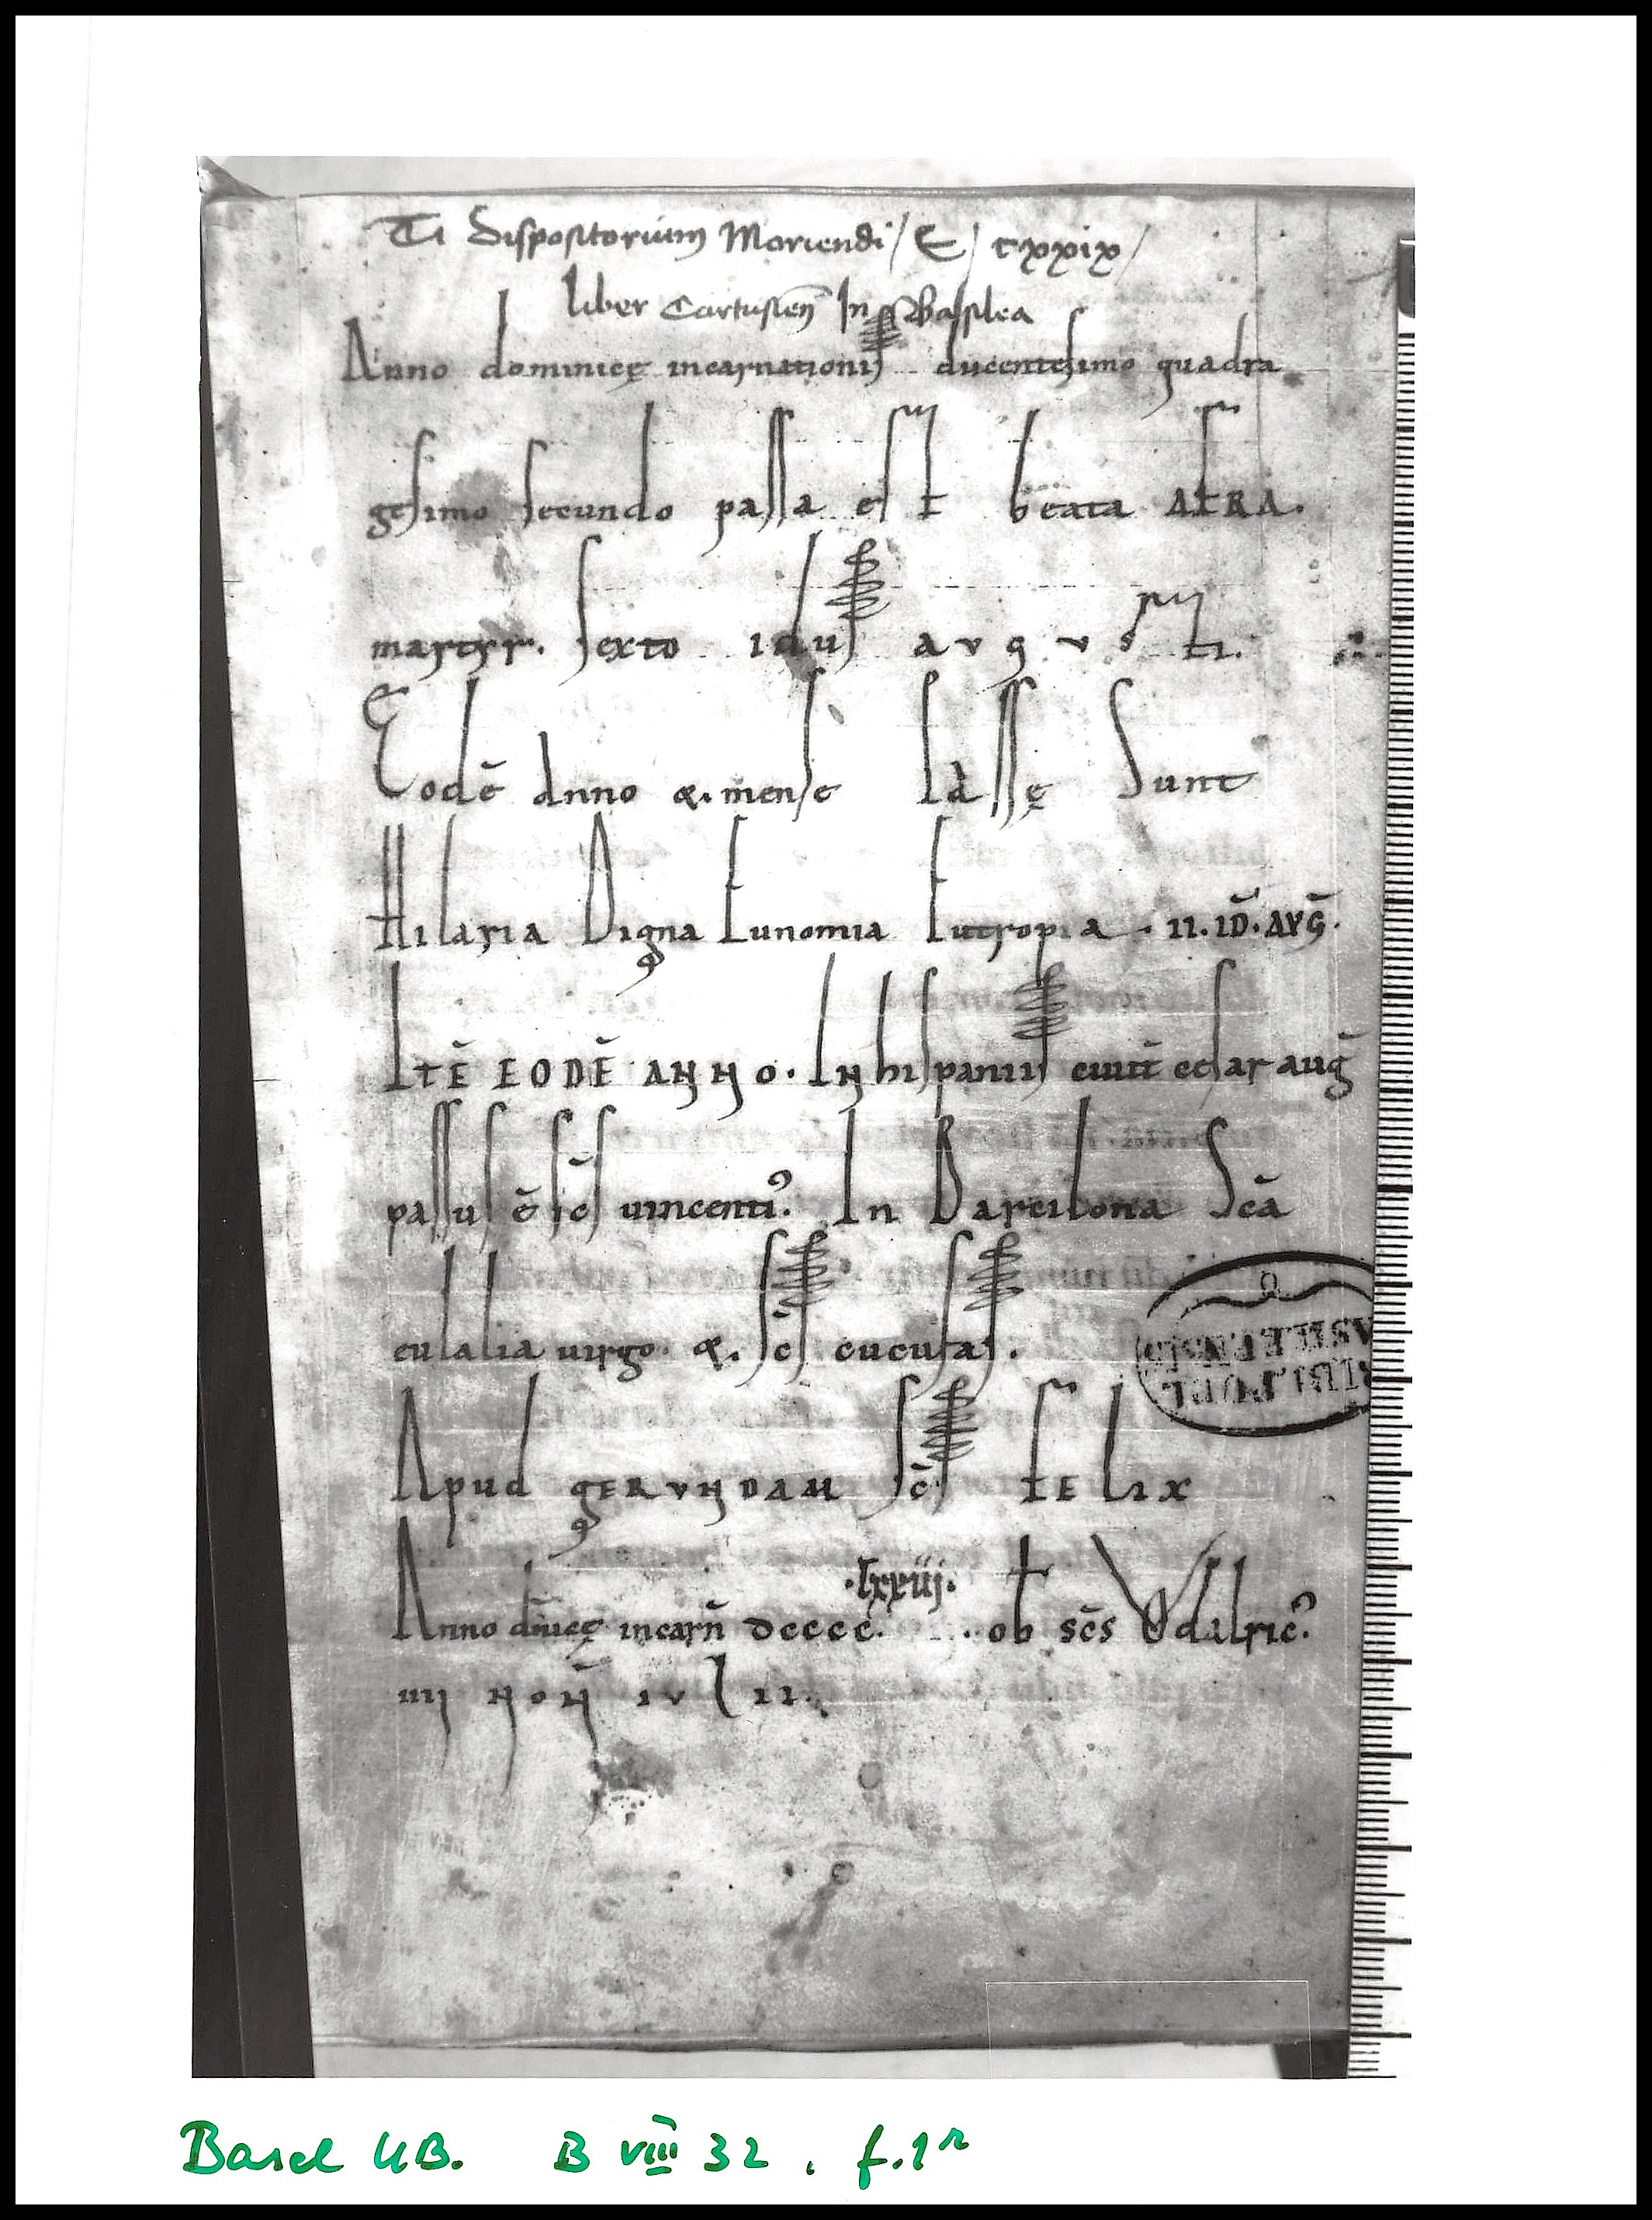 Ti Dispositorium Moriendi / E / cxxix /
liber Cartusieñ In Basilea
Anno dominicę incarnationis ducentesimo quadra
gesimo secundo passa est beata AFRA.
martyr. sexto idus avgvsti.
Eodē anno &. mense Passę Sunt
Hilaria Digna Eunomia Eutropia . II. ID̄. AVḠ.
ITĒ EODĒ ANNO. IN hispaniis ciuit̄ cesar aug̅
passus ē sc̄s uincenti⁹. In Barcilona Sc̄a
eulalia uirgo. &. sc̄s cucufas.
Apud GERVNDAM sc̄s FELIX
.lxxiij. †
Anno dn̄icę incarn̄ DCCCC. ..ob sc̄s Vdalric⁹.
iiij NON̄ IVLII.
BIBL. PUBL.
BASILEENSIS
Basel UB. B VIII 32, f.1r